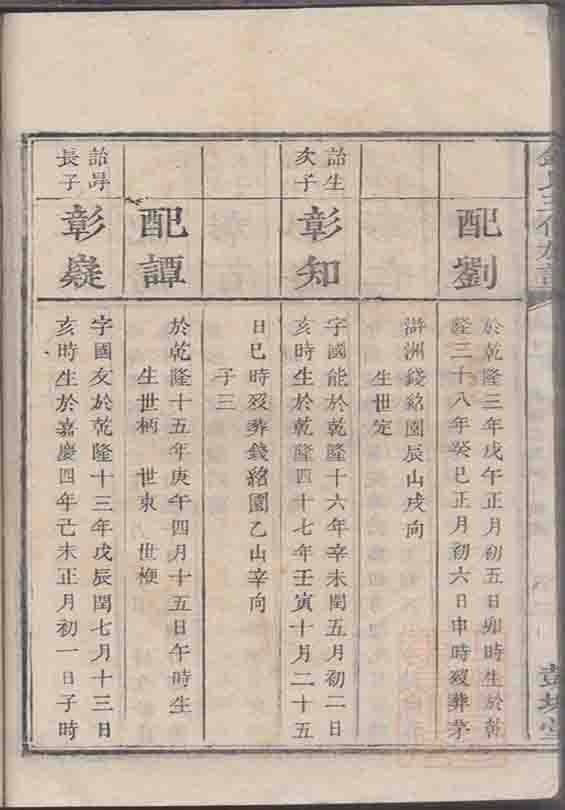 配劉
於乾隆三年戊午正月初五日卯時生於乾
隆三十八年癸巳正月初六日申時歿葬茅
滸洲錢銘園辰山戌向
生世定
詒生
次子
彰知
字國能於乾隆十六年辛未閏五月初二日
亥時生於乾隆四十七年壬寅十月二十五
日巳時歿葬錢銘園乙山辛向
子三
配譚
於乾隆十五年庚午四月十五日午時生
生世柄 世東 世梗
詒昇
長子
彰嶷
字國友於乾隆十三年戊辰閏七月十三日
亥時生於嘉慶四年己未正月初一日子時